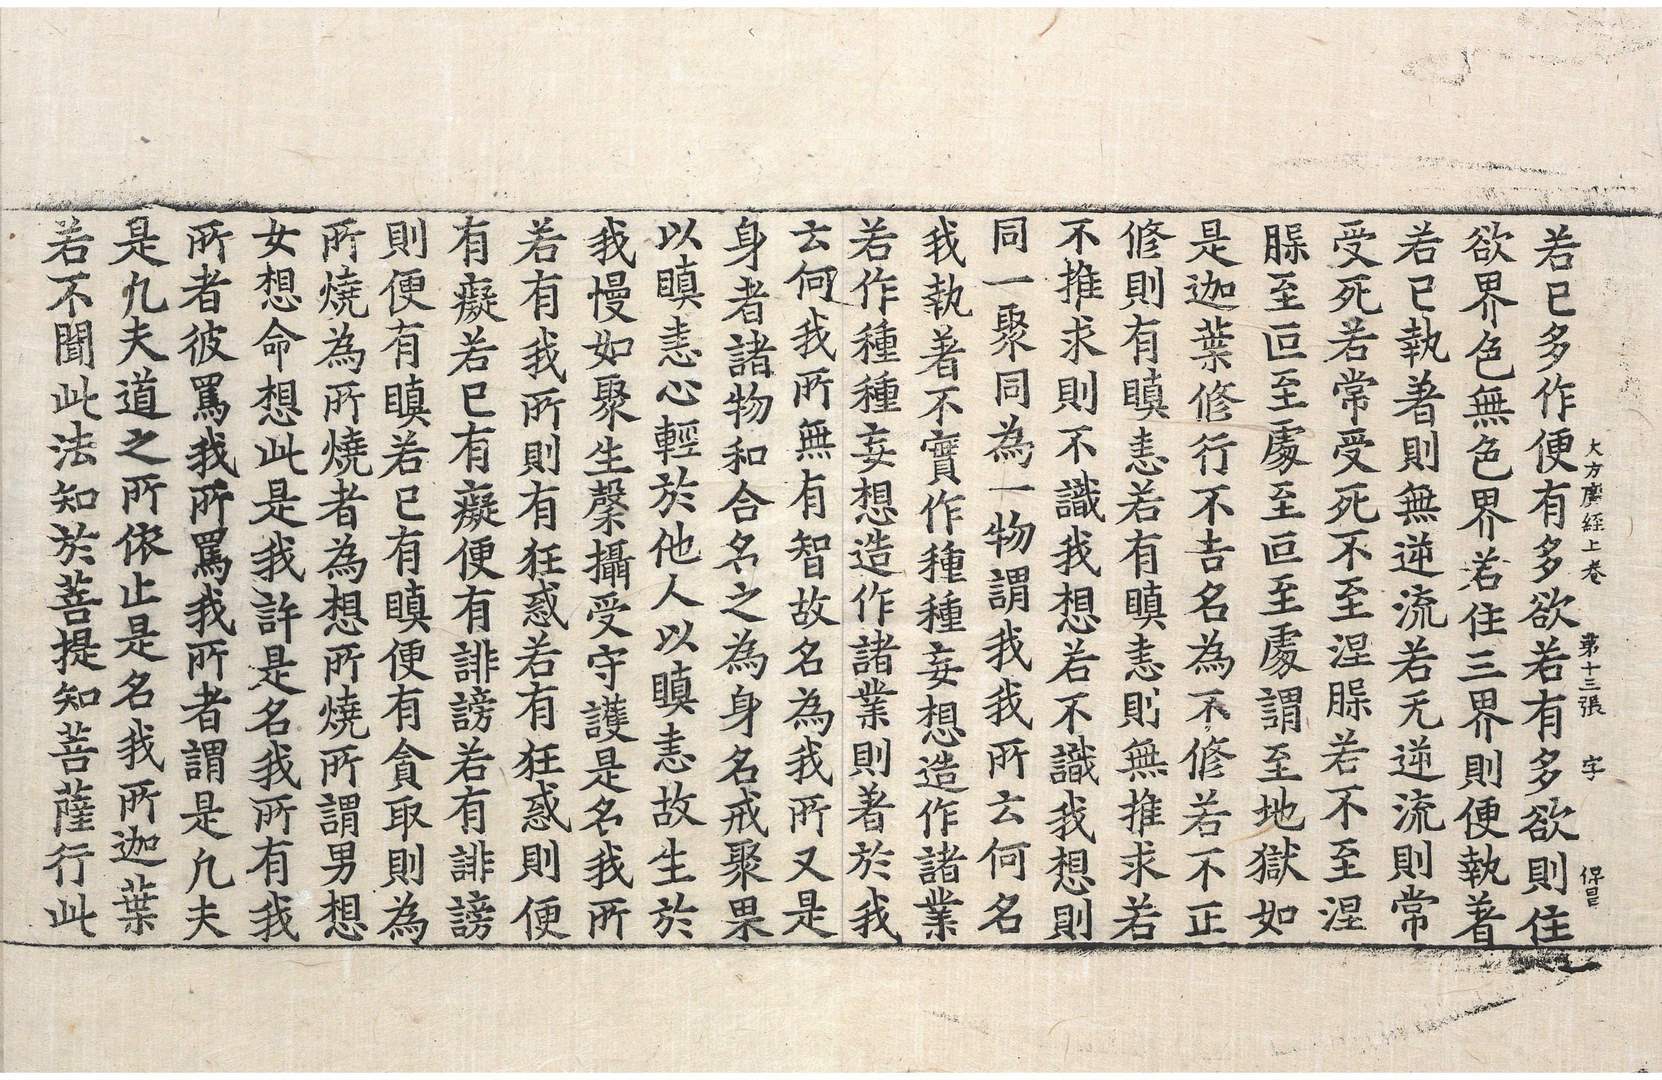 大方廣經上卷 第十三張 字
若已多作便有多欲若有多欲則住
欲界色無色界若住三界則便執著
若已執著則無逆流若无逆流則常
受死若常受死不至涅槃若不至涅
槃至叵至處至叵至處謂至地獄如
是迦葉修行不吉名為不修若不正
修則有瞋恚若有瞋恚則無推求若
不推求則不識我想若不識我想則
同一聚同為一物謂我我所云何名
我執著不實作種種妄想造作諸業
若作種種妄想造作諸業則著於我
云何我所無有智故名為我所又是
身者諸物和合名之為身名戒聚果
以瞋恚心輕於他人以瞋恚故生於
我慢如聚生攝受守護是名我所
若有我所則有狂惑若有狂惑則便
有癡若已有癡便有誹謗若有誹謗
則便有瞋若已有瞋便有貪取則為
所燒為所燒者為想所燒所謂男想
女想命想此是我許是名我所有我
所者彼罵我所罵我所者謂是凡夫
是凡夫道之所依止是名我所迦葉
若不聞此法知於菩提知菩薩行此